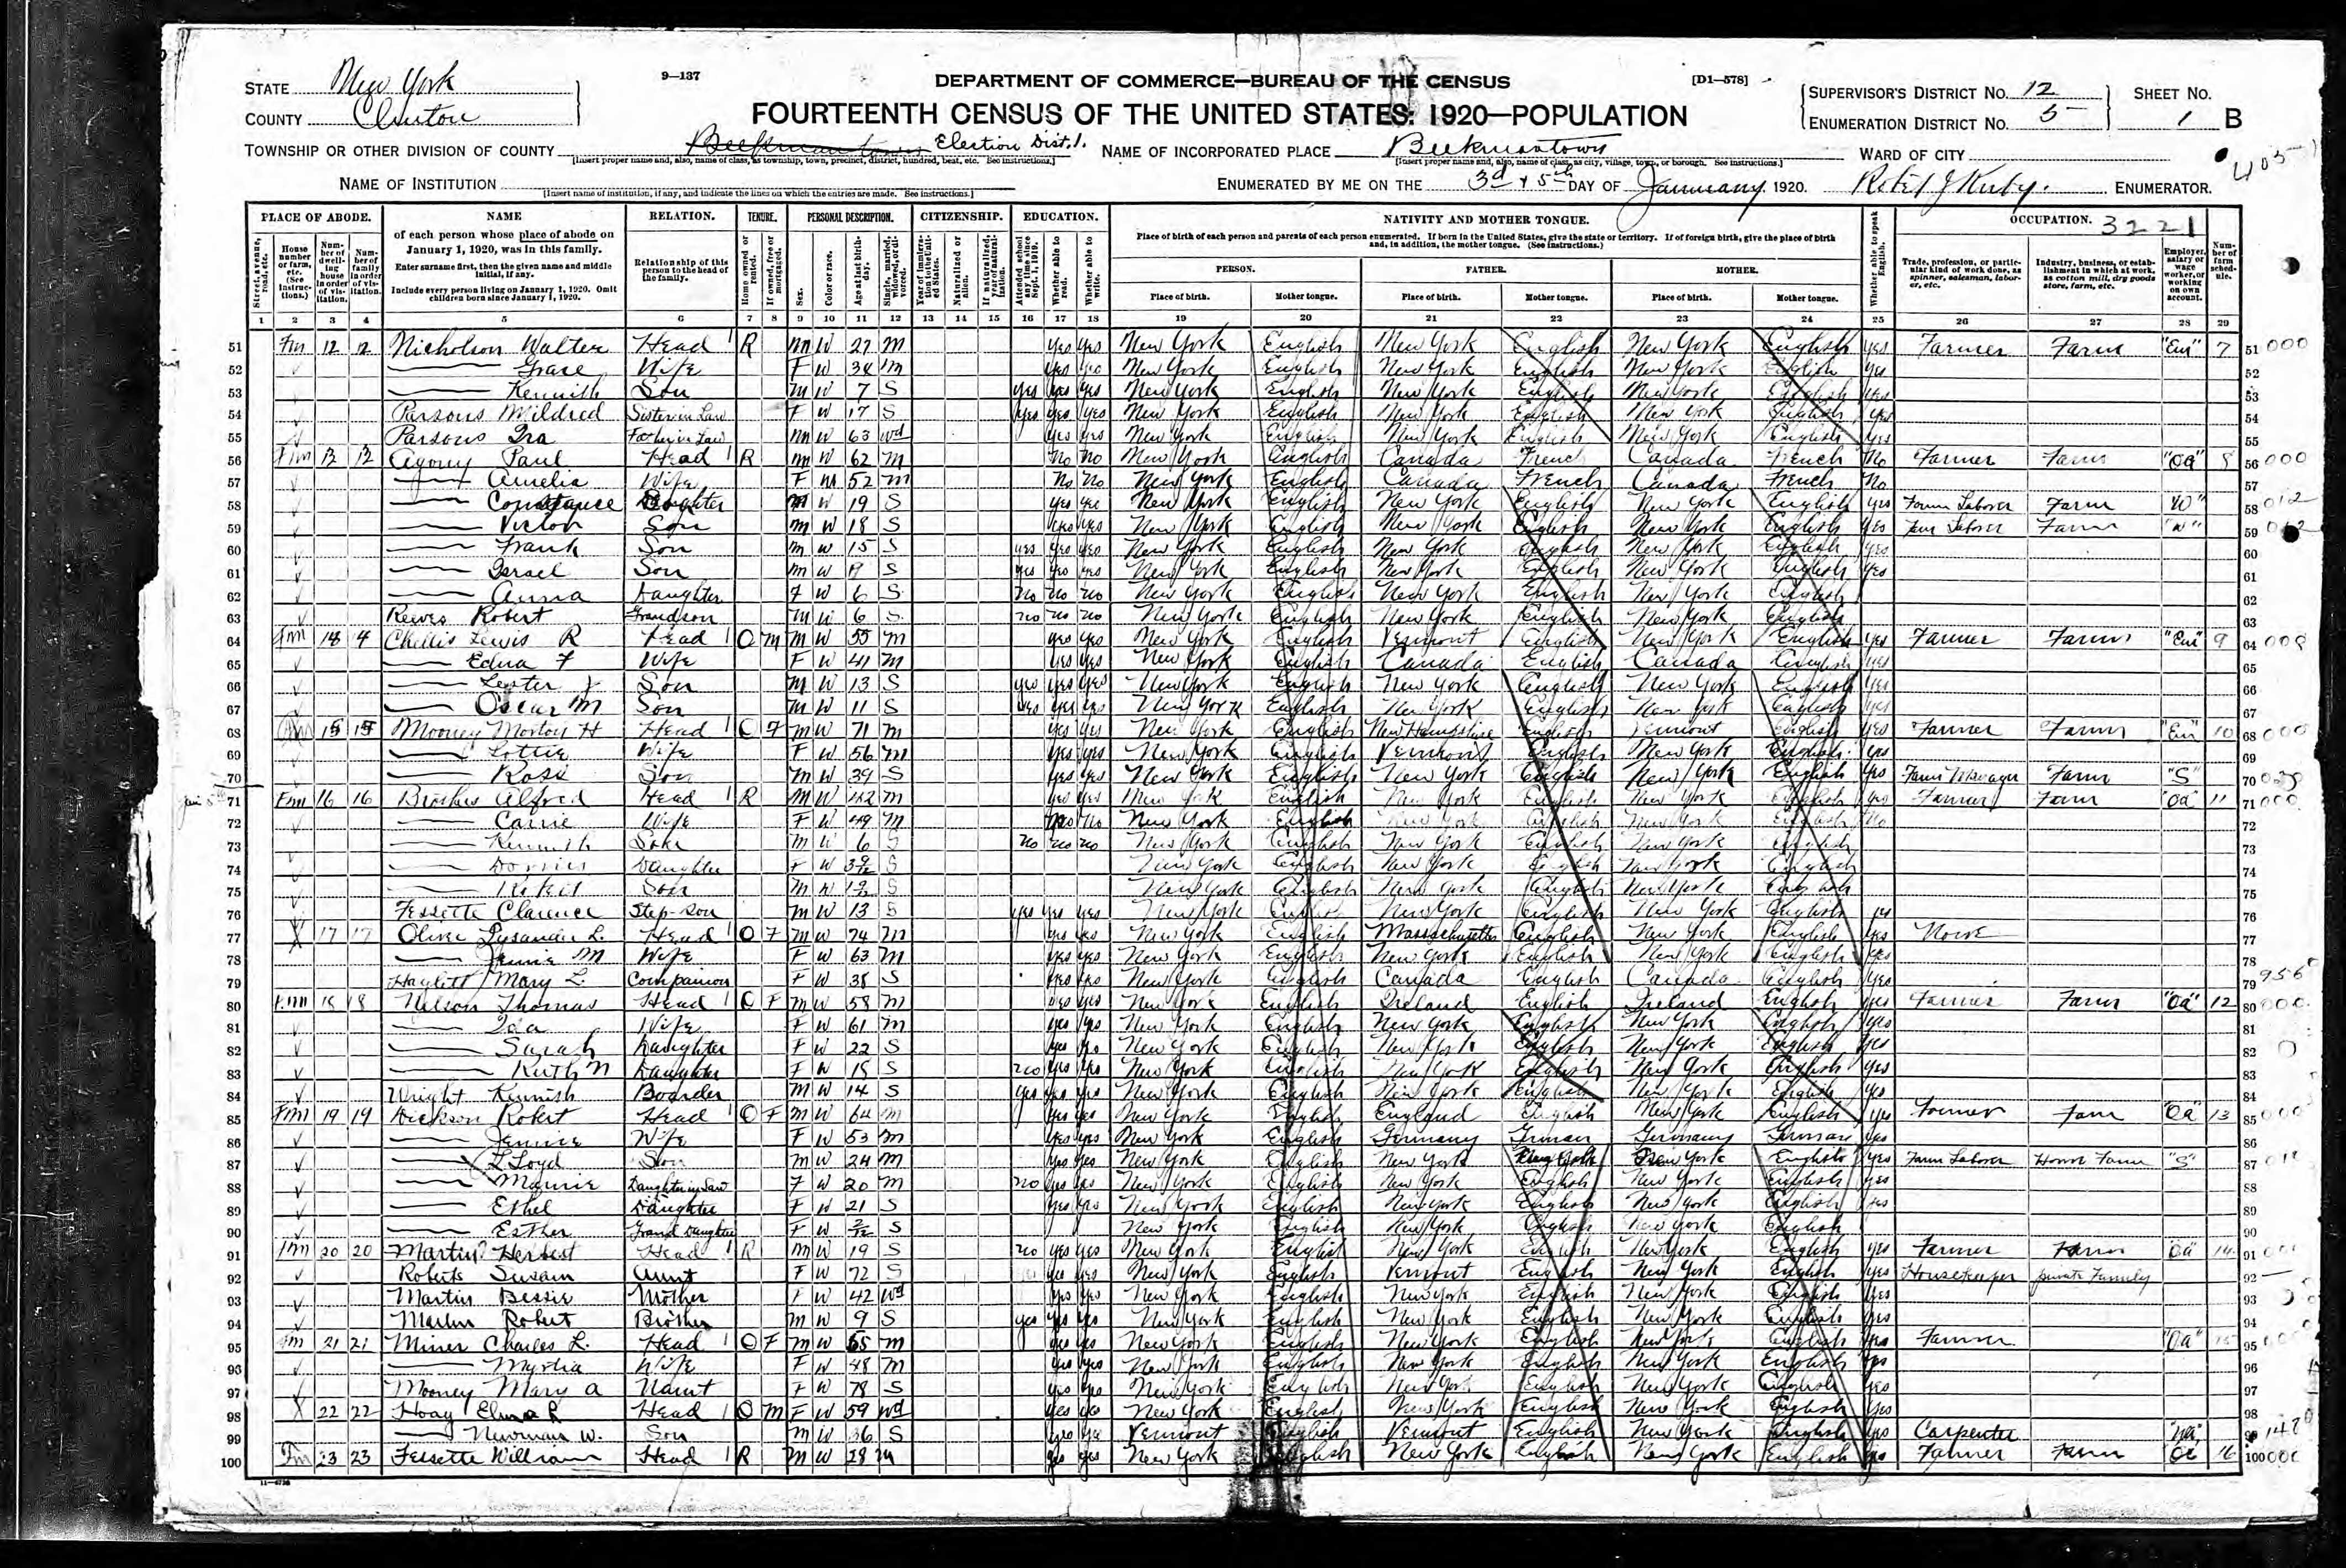 9—137
DEPARTMENT OF COMMERCE—BUREAU OF THE CENSUS
[D1—578]
STATE New York
COUNTY Clinton
FOURTEENTH CENSUS OF THE UNITED STATES: 1920—POPULATION
SUPERVISOR'S DISTRICT No. 12
ENUMERATION DISTRICT No. 5
SHEET No. 1 B
TOWNSHIP OR OTHER DIVISION OF COUNTY Beekmantown Election Dist 1.
[Insert proper name and, also, name of class, as township, town, precinct, district, hundred, beat, etc. See instructions.]
NAME OF INCORPORATED PLACE Beekmantown
[Insert proper name and, also, name of class, as city, village, town, or borough. See instructions.]
WARD OF CITY
NAME OF INSTITUTION
[Insert name of institution, if any, and indicate the lines on which the entries are made. See instructions.]
ENUMERATED BY ME ON THE 3d & 5th DAY OF January, 1920. Robt J Kirby. ENUMERATOR.
PLACE OF ABODE. NAME RELATION. TENURE. PERSONAL DESCRIPTION. CITIZENSHIP. EDUCATION. NATIVITY AND MOTHER TONGUE. OCCUPATION. 3221
of each person whose place of abode on January 1, 1920, was in this family.
Enter surname first, then the given name and middle initial, if any.
Include every person living on January 1, 1920. Omit children born since January 1, 1920.
Relationship of this person to the head of the family.
Place of birth of each person and parents of each person enumerated. If born in the United States, give the state or territory. If of foreign birth, give the place of birth and, in addition, the mother tongue. (See instructions.)
PERSON. FATHER. MOTHER.
Place of birth. Mother tongue. Place of birth. Mother tongue. Place of birth. Mother tongue.
1 2 3 4 5 6 7 8 9 10 11 12 13 14 15 16 17 18 19 20 21 22 23 24 25 26 27 28 29
51 Fm 12 12 Nicholson Walter Head R M W 27 M Yes Yes New York English New York English New York English Yes Farmer Farm "Em" 7 51 000
52 Grace Wife F W 34 M Yes Yes New York English New York English New York English Yes 52
53 Kennith Son M W 7 S Yes Yes Yes New York English New York English New York English Yes 53
54 Parsons Mildred Sister in Law F W 17 S Yes Yes Yes New York English New York English New York English Yes 54
55 Parsons Ira Father in Law M W 63 Wd Yes Yes New York English New York English New York English Yes 55
56 Fm 13 13 Paul Head R M W 62 M No No New York English Canada French Canada French No Farmer Farm "Oa" 8 56 000
57 Amelia Wife F W 52 M No No New York English Canada French Canada French No 57
58 Daughter W 19 S Yes Yes New York English New York English New York English Yes Farm Laborer Farm "W" 58
59 Victor Son M W 18 S Yes Yes New York English New York English New York English Yes Farm Laborer Farm "W" 59
60 Frank Son M W 15 S Yes Yes Yes New York English New York English New York English Yes 60
61 Israel Son M W 9 S Yes Yes Yes New York English New York English New York English Yes 61
62 Anna Daughter F W 6 S No No No New York English New York English New York English 62
63 Robert Grandson M W 6 S No No No New York English New York English New York English 63
64 Fm 14 Chellis Lewis R Head O M M W 55 M Yes Yes New York English Vermont English New York English Yes Farmer Farm "Em" 9 64
65 Edna F Wife F W 41 M Yes Yes New York English Canada English Canada English Yes 65
66 Lester Son M W 13 S Yes Yes Yes New York English New York English New York English Yes 66
67 Oscar M Son M W 11 S Yes Yes Yes New York English New York English New York English Yes 67
68 15 15 Mooney Morton H Head O F M W 71 M Yes Yes New York English New Hampshire English Vermont English Yes Farmer Farm "Em" 10 68 000
69 Lottie Wife F W 56 M Yes Yes New York English Vermont English New York English Yes 69
70 Ross Son M W 39 S Yes Yes New York English New York English New York English Yes Farm Manager Farm "S" 70
71 Fm 16 16 Alfred Head R M W 42 M Yes Yes New York English New York English New York English Yes Farmer Farm "Oa" 11 71 000
72 Carrie Wife F W 49 M No No New York English New York English New York English No 72
73 Kennith Son M W 6 S No No No New York English New York English New York English 73
74 Daughter F W S New York English New York English New York English 74
75 Son M W S New York English New York English New York English 75
76 Fessette Clarence Step-Son M W 13 S Yes Yes Yes New York English New York English New York English Yes 76
77 17 17 Oliver Lysander L. Head O F M W 74 M Yes Yes New York English Massachusetts English New York English Yes None 77
78 Jennie M Wife F W 63 M Yes Yes New York English New York English New York English Yes 78
79 Mary L. Companion F W 38 S Yes Yes New York English Canada English Canada English Yes 79 956
80 Fm 18 18 Nelson Thomas Head O F M W 58 M Yes Yes New York English Ireland English Ireland English Yes Farmer Farm "Oa" 12 80 000
81 Ida Wife F W 61 M Yes Yes New York English New York English New York English Yes 81
82 Sarah Daughter F W 22 S Yes Yes New York English New York English New York English Yes 82
83 Ruth M Daughter F W 15 S No Yes Yes New York English New York English New York English Yes 83
84 Wright Kennish Boarder M W 14 S Yes Yes Yes New York English New York English New York English Yes 84
85 Fm 19 19 Dickson Robert Head O F M W 64 M Yes Yes New York English England English New York English Yes Farmer Farm "Oa" 13 85 000
86 Jennie Wife F W 53 M Yes Yes New York English Germany German Germany German Yes 86
87 LLoyd Son M W 24 M Yes Yes New York English New York New York English Yes Farm Laborer Home Farm "S" 87
88 Daughter in Law F W 20 M No Yes Yes New York English New York English New York English Yes 88
89 Ethel Daughter F W 21 S Yes Yes New York English New York English New York English Yes 89
90 Esther Grand Daughter F W 2/12 S New York English New York English New York English 90
91 Fm 20 20 Martin Herbert Head R M W 19 S No Yes Yes New York English New York English New York English Yes Farmer Farm "Oa" 14 91
92 Roberts Susan Aunt F W 72 S Yes Yes New York English Vermont English New York English Yes Housekeeper private Family 92
93 Martin Bessie Mother F W 42 Wd Yes Yes New York English New York English New York English Yes 93
94 Martin Robert Brother M W 9 S Yes Yes Yes New York English New York English New York English Yes 94
95 Fm 21 21 Miner Charles L. Head O F M W M Yes Yes New York English New York English New York English Yes Farmer "Oa" 15 95
96 Myrtia Wife F W 48 M Yes Yes New York English New York English New York English Yes 96
97 Mooney Mary A F W 78 S Yes Yes New York English New York English New York English Yes 97
98 22 22 Hoag Head O M F W 59 Wd Yes Yes New York English New York English New York English Yes 98
99 Newman W. Son M W 36 S Yes Yes Vermont English Vermont English New York English Yes Carpenter 99
100 Fm 23 23 Fessette William Head R M W 28 M Yes Yes New York English New York English New York English Yes Farmer Farm "Oa" 16 100 000